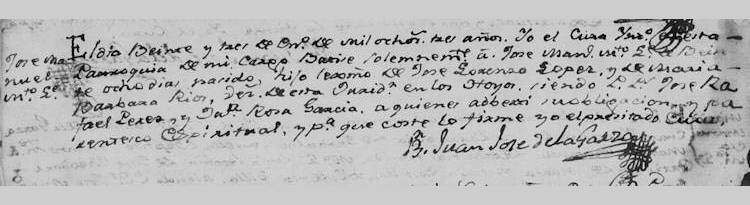 El dia Beinte y tres de En.º de mil ochos. tres años. Yo el Cura Ynt.º de esta
Jose Ma Parroquia de mi Cargo Batise solemnem.te á Jose Man.l
nuel te ocho dias nacido, hijo lexmo de Jose Lorenzo Lopez, y de Maria
Barbara Rios, vez. de esta Jurid.n en los Oyos, siendo P.P. Jose Ra
fael Perez y Rosa Garcia, a quienes adberti su obligacion, y pa
rentesco Espiritual, y p.a que coste lo firme yo el presitado Cura.
B. Juan Jose de la Garza